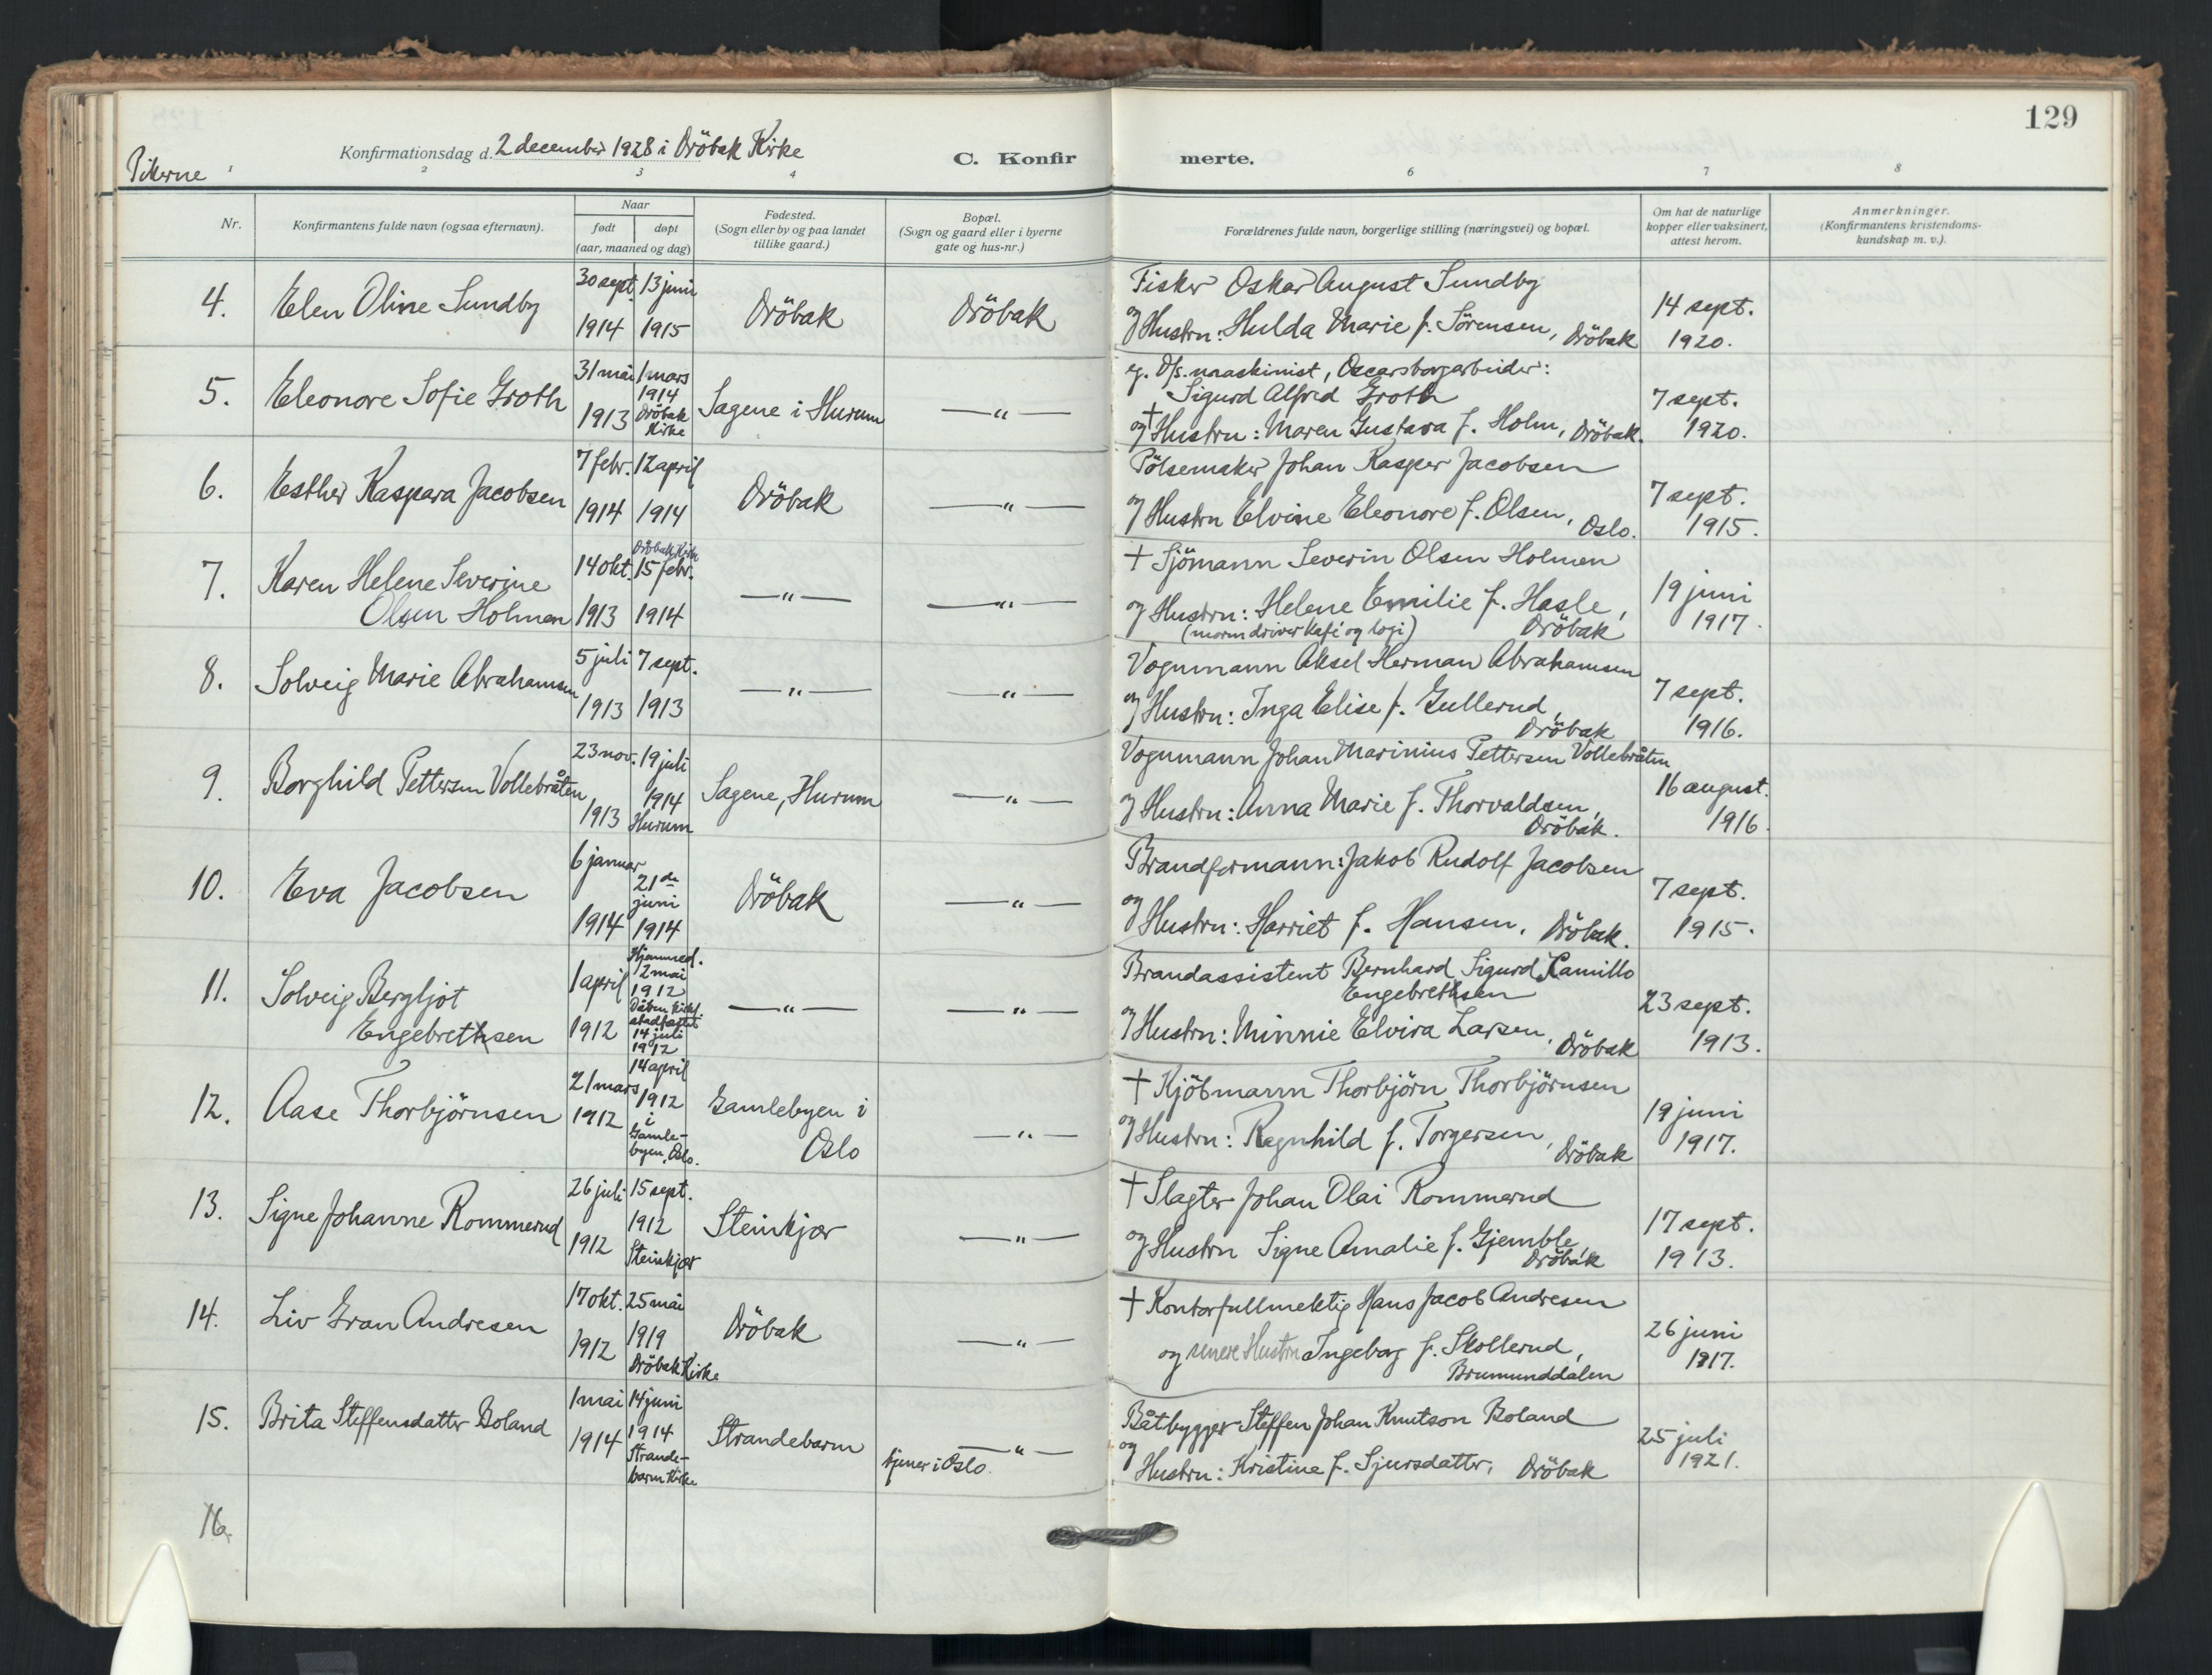 129
Konfirmationsdag d. 2 december 1928 i Dröbak Kirke
C. Konfirmerte.
Pikerne
1 2 3 4 6 7 8
Nr.
Konfirmantens fulde navn (ogsaa efternavn).
Naar
født døpt
(aar, maaned og dag)
Fødested.
(Sogn eller by og paa landet
tillike gaard.)
Bopæl.
(Sogn og gaard eller i byerne
gate og hus-nr.)
Forældrenes fulde navn, borgerlige stilling (næringsvei) og bopæl.
Om hat de naturlige
kopper eller vaksinert,
attest herom.
Anmerkninger.
(Konfirmantens kristendoms-
kundskap m. v.).
4. Elen Oline Sundby
30 sept. 1914
13 juni 1915
Dröbak
Dröbak
Fisker Oskar August Sundby
og Hustru: Hulda Marie f. Sörensen, Dröbak
14 sept.
1920.
5. Eleonore Sofie Groth
31 mai 1913
1 mars
1914
Dröbak
Kirke
Sagene i Hurum
—"—
eg. D/s. maskinist, Oscarsborgarbeider:
Sigurd Alfred Groth
og † Hustru: Maren Gustava f. Holm, Dröbak.
7 sept.
1920.
6. Esther Kaspara Jacobsen
7 febr. 1914
12 april 1914
Dröbak
—"—
Pölsemaker Johan Kasper Jacobsen
og Hustru Elvine Eleonore f. Olsen, Oslo.
7 sept.
1915.
7. Karen Helene Severine
Olsen Holmen
14 okt. 1913
Dröbak Kirke
15 febr.
1914
—"—
—"—
† Sjömann Severin Olsen Holmen
og Hustru: Helene Emilie f. Hasle,
(moren driver Kafé og logi) Dröbak
19 juni
1917.
8. Solveig Marie Abrahamsen
5 juli 1913
7 sept. 1913
—"—
—"—
Vognmann Aksel Herman Abrahamsen
og Hustru: Inga Elise f. Gullerud,
Dröbak
7 sept.
1916.
9. Borghild Pettersen Vollebråten
23 nov. 1913
19 juli
1914
Hurum
Sagene, Hurum
—"—
Vognmann Johan Marinius Pettersen Vollebråten
og Hustru: Anna Marie f. Thorvaldsen,
Dröbak.
16 august.
1916.
10. Eva Jacobsen
6 januar 1914
21de
juni
1914
Dröbak
—"—
Brandformann: Jakob Rudolf Jacobsen
og Hustru: Harriet f. Hansen, Dröbak.
7 sept.
1915.
11. Solveig Bergljot
Engebrethsen
1 april 1912
Hjemmed.
12 mai
1912
Dåben
stadfæstet
14 juli
1912
—"—
—"—
Brandassistent Bernhard Sigurd Kamillo
Engebrethsen
og Hustru: Minnie Elvira Larsen, Dröbak
23 sept.
1913.
12. Aase Thorbjörnsen
21 mars
1912
14 april
1912
i
Gamle-
byen, Oslo.
Gamlebyen i
Oslo
—"—
† Kjöbmann Thorbjörn Thorbjörnsen
og Hustru: Ragnhild f. Torgersen, Dröbak
19 juni
1917.
13. Signe Johanne Rommerud
26 juli 1912
15 sept.
1912
Steinkjær
Steinkjær
—"—
† Slagter Johan Olai Rommerud
og Hustru Signe Amalie f. Gjemble,
Dröbak
17 sept.
1913.
14. Liv Gran Andresen
17 okt. 1912
25 mai
1919
Dröbak Kirke
Dröbak
—"—
† Kontorfullmektig Hans Jacob Andresen
og senere Hustru Ingeborg f. Skollerud,
Brumunddalen
26 juni
1917.
15. Brita Steffensdatter Boland
1 mai 1914
14 juni
1914
Strande-
barm Kirke
Strandebarm
—"—
tjener i Oslo.
Båtbygger Steffen Johan Knutson Boland
og
Hustru: Kristine f. Sjursdatter, Dröbak
25 juli
1921.
16.